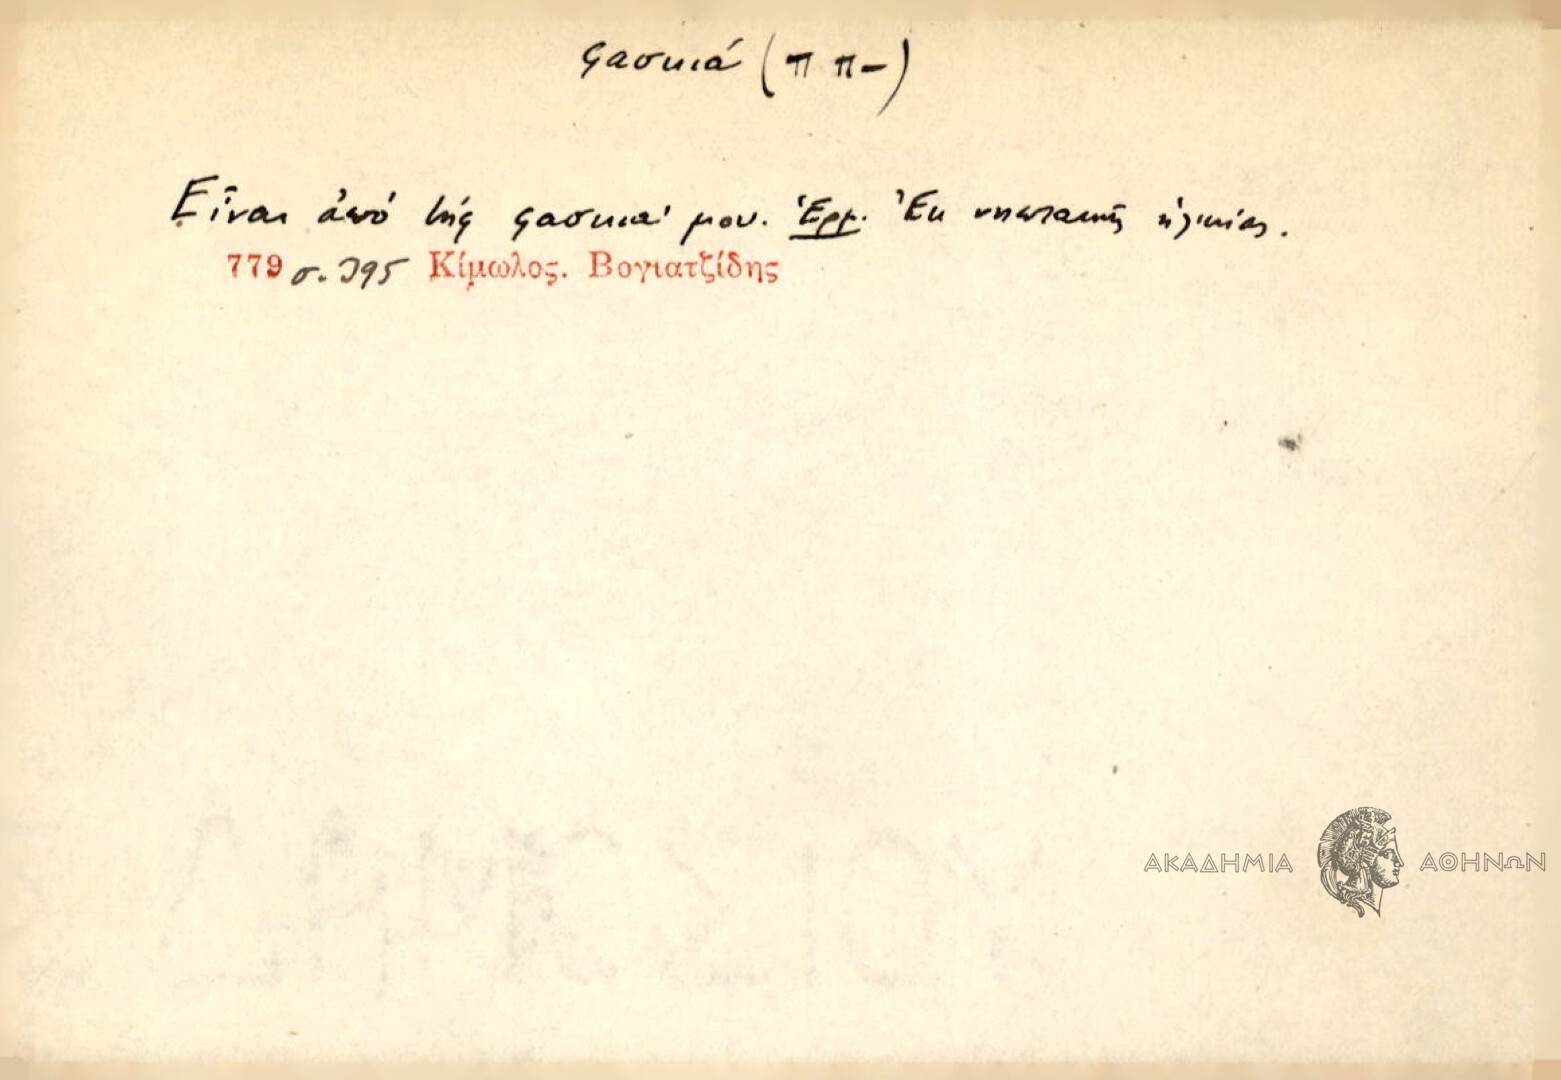 φασκιά (π π-)
Εἶναι ἀπό τῆς φασκιά μου. Ἑρμ. Ἐκ νηπιακῆς ἡλικίας.
779 σ. 395 Κίμωλος. Βογιατζίδης
ΑΚΑΔΗΜΙΑ ΑΘΗΝΩΝ